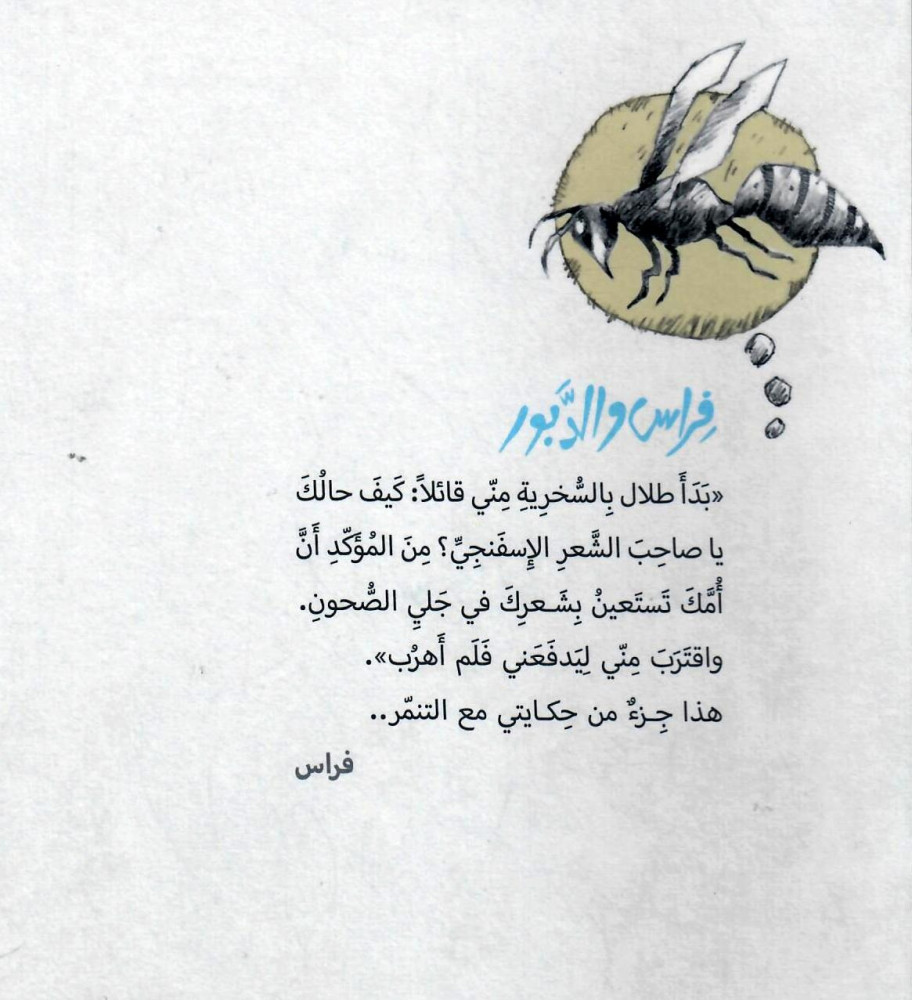 فِراس والدَّبور
«بَدَأَ طلال بِالسُّخرِيةِ مِنّي قائلاً: كَيفَ حالُكَ
يا صاحِبَ الشَّعرِ الإِسفَنجِيِّ؟ مِنَ المُؤَكّدِ أَنَّ
أُمَّكَ تَستَعينُ بِشَـعرِكَ في جَليِ الصُّحونِ.
واقتَرَبَ مِنّي لِيَدفَعَني فَلَم أَهرُب».
هذا جِـزءٌ من حِكـايتي مع التنمّر..
فراس